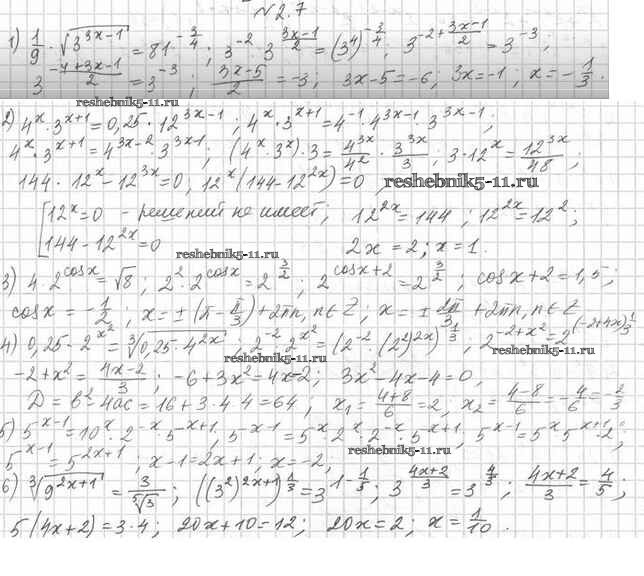 №2.7
1) 1/9 · √(3^(3x-1)) = 81^(-3/4) ; 3^(-2) · 3^((3x-1)/2) = (3^4)^(-3/4) ; 3^(-2+(3x-1)/2) = 3^(-3) ;
3^((-4+3x-1)/2) = 3^(-3) ; (3x-5)/2 = -3 ; 3x-5=-6 ; 3x=-1 ; x = -1/3 .
reshebnik5-11.ru
2) 4^x · 3^(x+1) = 0,25 · 12^(3x-1) ; 4^x · 3^(x+1) = 4^(-1) · 4^(3x-1) · 3^(3x-1) ;
4^x · 3^(x+1) = 4^(3x-2) · 3^(3x-1) ; (4^x · 3^x) · 3 = 4^(3x)/4^2 · 3^(3x)/3 ; 3 · 12^x = 12^(3x)/48 ;
144 · 12^x - 12^(3x) = 0 ; 12^x (144 - 12^(2x)) = 0
reshebnik5-11.ru
[ 12^x = 0 - решений не имеет ; 12^(2x) = 144 ; 12^(2x) = 12^2 ;
144 - 12^(2x) = 0 2x = 2 ; x = 1 .
reshebnik5-11.ru
3) 4 · 2^(cosx) = √8 ; 2^2 · 2^(cosx) = 2^(3/2) ; 2^(cosx+2) = 2^(3/2) ; cosx + 2 = 1,5 ;
cosx = -1/2 ; x = ±(π - π/3) + 2πn, n∈Z ; x = ± 2π/3 + 2πn, n∈Z
4) 0,25 · 2^(x^2) = ∛(0,25 · 4^(2x)) ; 2^(-2) · 2^(x^2) = (2^(-2) · (2^2)^(2x))^(1/3) ; 2^(-2+x^2) = 2^((-2+4x)1/3)
reshebnik5-11.ru
-2+x^2 = (4x-2)/3 ; -6+3x^2 = 4x-2 ; 3x^2-4x-4=0 ;
D = b^2-4ac = 16+3·4·4 = 64 ; x₁ = (4+8)/6 = 2 ; x₂ = (4-8)/6 = -4/6 = -2/3
5) 5^(x-1) = 10^x · 2^(-x) · 5^(x+1) ; 5^(x-1) = 5^x · 2^x · 2^(-x) · 5^(x+1) ; 5^(x-1) = 5^x 5^(x+1) · 2° ;
5^(x-1) = 5^(2x+1) ; x-1=2x+1 ; x=-2 ;
reshebnik5-11.ru
6) ∛(9^(2x+1)) = 3/⁵√3 ; ((3^2)^(2x+1))^(1/3) = 3^(1-1/5) ; 3^((4x+2)/3) = 3^(4/5) ; (4x+2)/3 = 4/5 ;
5(4x+2) = 3·4 ; 20x+10=12 ; 20x=2 ; x = 1/10 .